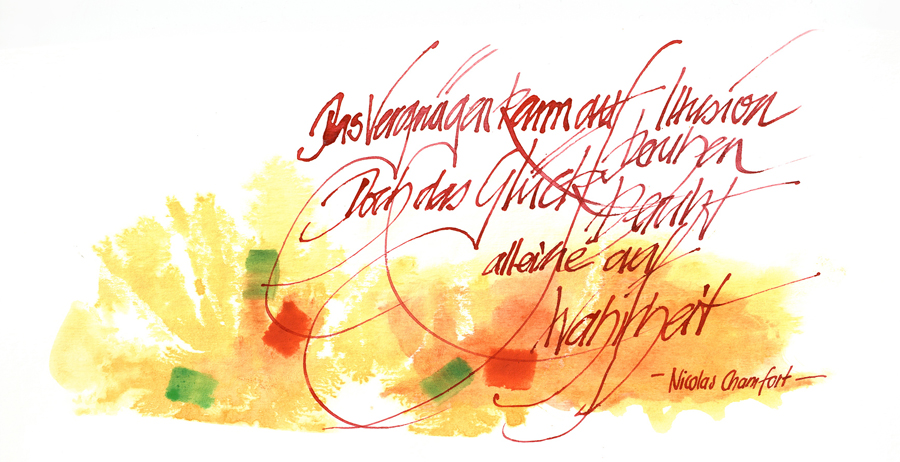 Das Vergnügen kann auf Illusion
beruhen
Doch das Glück beruht
alleine auf
Wahrheit
- Nicolas Chamfort -